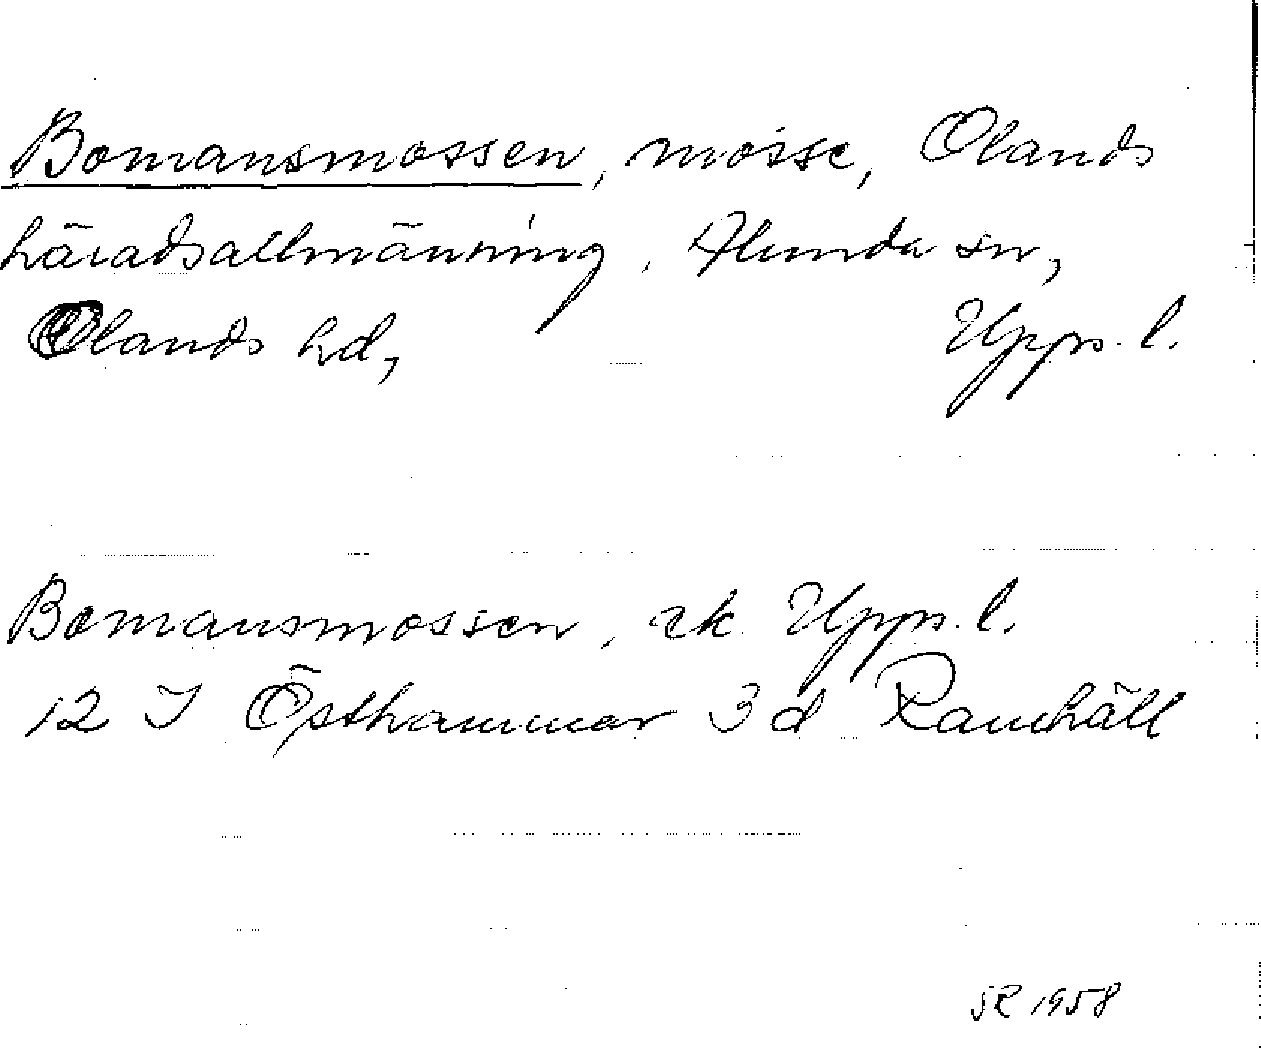 Bomansmossen, mosse, Olands
häradsallmänning, Alunda sn,
Olands hd, Upps. l.
Bomansmossen, rk. Upps. l.
12 I Östhammar 3 d Ramhäll
SR 1958